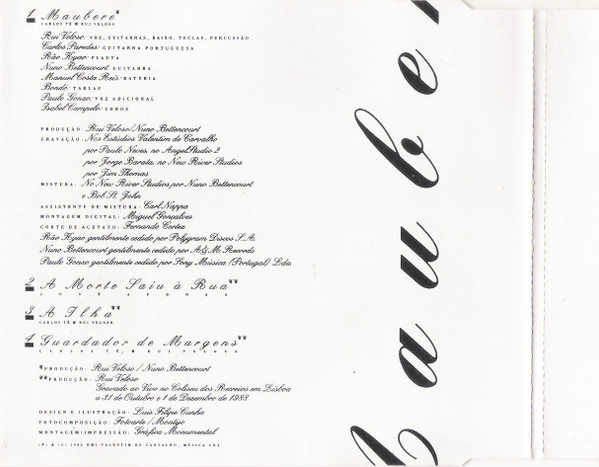 1 Maubere*
CARLOS TÊ M RUI VELOSO
Rui Veloso: VOZ, GUITARRAS, BAIXO, TECLAS, PERCUSSÃO
Carlos Paredes: GUITARRA PORTUGUESA
Rão Kyao: FLAUTA
Nuno Bettencourt: GUITARRA
Manuel Costa Reis: BATERIA
Bondó: TABLAS
Paulo Gonzo: VOZ ADICIONAL
Isabel Campelo: COROS
PRODUÇÃO: Rui Veloso/Nuno Bettencourt
GRAVAÇÃO: Nos Estúdios Valentim de Carvalho
por Paulo Neves, no AngelStudio 2
por Jorge Barata, no New River Studios
por Jim Thomas
MISTURA: No New River Studios por Nuno Bettencourt
e Bob St. John
ASSISTENTE DE MISTURA: Carl Nappa
MONTAGEM DIGITAL: Miguel Gonçalves
CORTE DE ACETATO: Fernando Cortez
Rão Kyao gentilmente cedido por Polygram Discos S.A.
Nuno Bettencourt gentilmente cedido por A&M Records
Paulo Gonzo gentilmente cedido por Sony Música (Portugal) Lda.
2 A Morte Saiu à Rua**
JOSÉ AFONSO
3 A Ilha**
CARLOS TÊ M RUI VELOSO
4 Guardador de Margens**
CARLOS TÊ M RUI VELOSO
*PRODUÇÃO: Rui Veloso / Nuno Bettencourt
**PRODUÇÃO: Rui Veloso
Gravado ao Vivo no Coliseu dos Recreios em Lisboa
a 31 de Outubro e 1 de Dezembro de 1988
DESIGN E ILUSTRAÇÃO: Luis Filipe Cunha
FOTOCOMPOSIÇÃO: Fotoarte / Montijo
MONTAGEM/IMPRESSÃO: Gráfica Monumental
(P) & (C) 1992 EMI-VALENTIM DE CARVALHO, MÚSICA LDA
aube